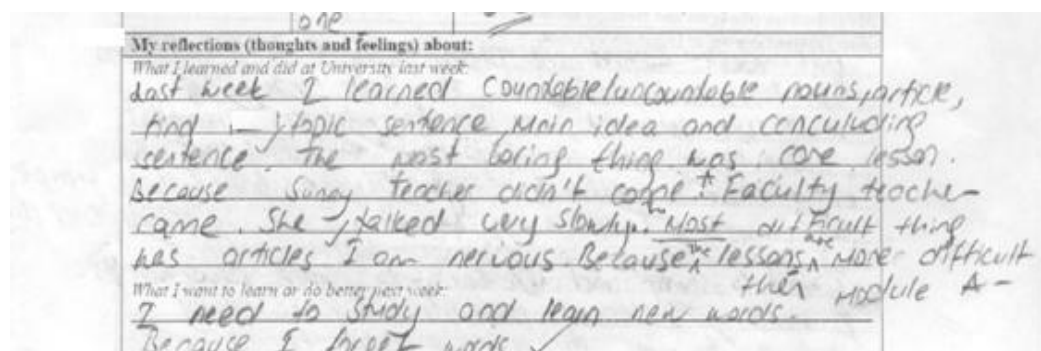 one
My reflections (thoughts and feelings) about:
What I learned and did at University last week:
Last week I learned countable/uncountable nouns, article,
And topic sentence, main idea and concluding
sentence. The most boring thing was core lesson.
Because Sunny teacher didn't come. Faculty teacher
came. She talked very slowly. Most difficult thing
was articles I am nervious. Because the lessons are more difficult
then module A-
What I want to learn or do better next week:
I need to study and learn new words.
Because I forget words